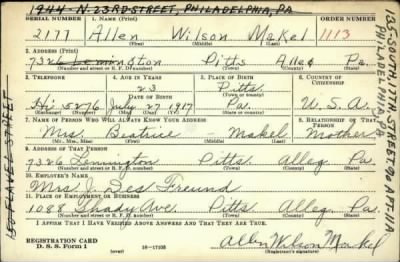 1944 N. 23RD STREET, PHILADELPHIA, PA
SERIAL NUMBER 1. NAME (Print) ORDER NUMBER
2177 Allen Wilson Makel 1113
(First) (Middle) (Last)
2. ADDRESS (Print)
7326 Lemington Pitts Alleg Pa.
(Number and street or R. F. D. number) (Town) (County) (State)
3. TELEPHONE 4. AGE IN YEARS 5. PLACE OF BIRTH 6. COUNTRY OF CITIZENSHIP
23 Pitts.
DATE OF BIRTH (Town or county)
Hi 5276 July 27 1917 Pa. U. S. A.
(Exchange) (Number) (Mo.) (Day) (Yr.) (State or country)
7. NAME OF PERSON WHO WILL ALWAYS KNOW YOUR ADDRESS 8. RELATIONSHIP OF THAT PERSON
Mrs. Beatrice - Makel Mother
(Mr., Mrs., Miss) (First) (Middle) (Last)
9. ADDRESS OF THAT PERSON
7326 Lemington Pitts. Alleg. Pa.
(Number and street or R. F. D. number) (Town) (County) (State)
10. EMPLOYER'S NAME
Mrs. J. Des Freund
11. PLACE OF EMPLOYMENT OR BUSINESS
1088 Shady Ave. Pitts Alleg. Pa.
(Number and street or R. F. D. number) (Town) (County) (State)
I AFFIRM THAT I HAVE VERIFIED ABOVE ANSWERS AND THAT THEY ARE TRUE.
REGISTRATION CARD
D. S. S. Form 1 16—17105 Allen Wilson Makel
STREET
PHILADELPHIA, PA. APT-11A